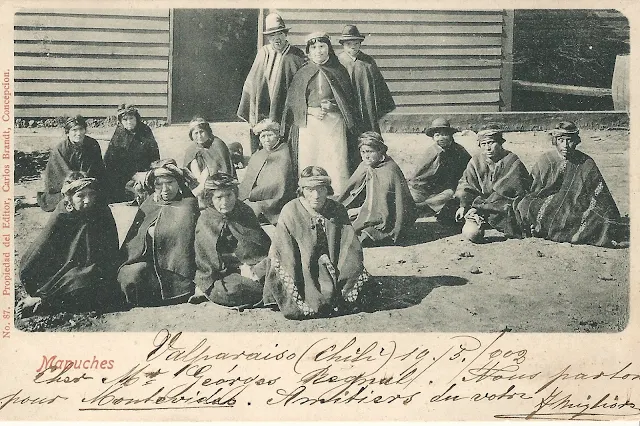 No. 87. Propiedad del Editor, Carlos Brandt, Concepcion.
Mapuches
Valparaiso (Chili) 19. 5. /902
Cher Mr. Georges Regnul. Nous partons
pour Montevideo. Amitiers du votre